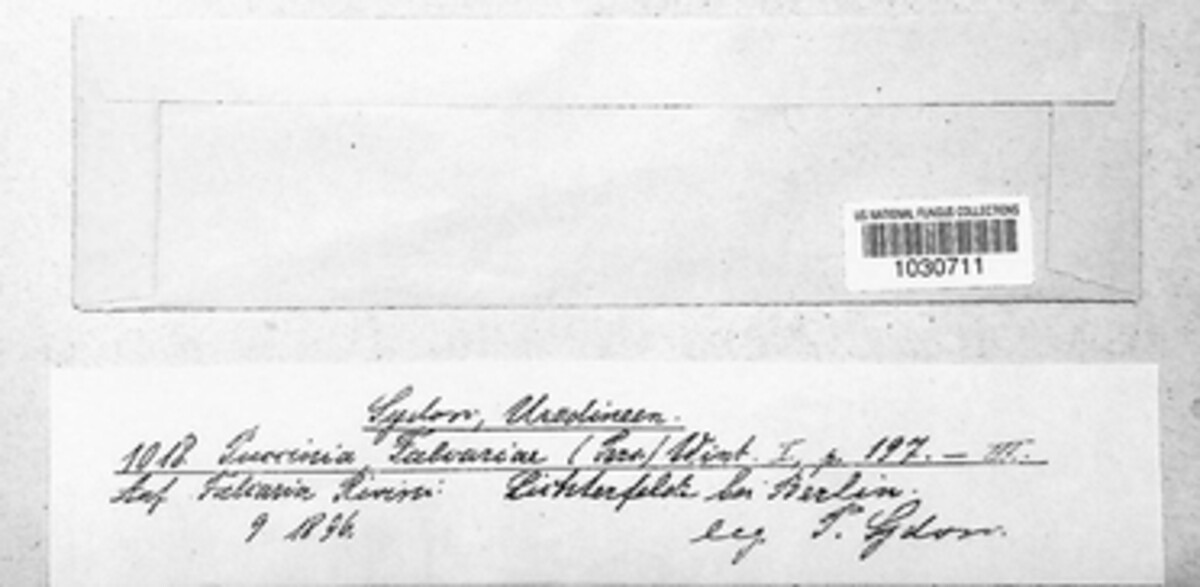 US NATIONAL FUNGUS COLLECTIONS
1030711
Sydow, Uredineen.
1018. Puccinia Falcariae (Pers.) Wint. I, p. 197. – III.
Auf Falcaria Rivini. Lichterfelde bei Berlin.
9 1896. leg P. Sydow.